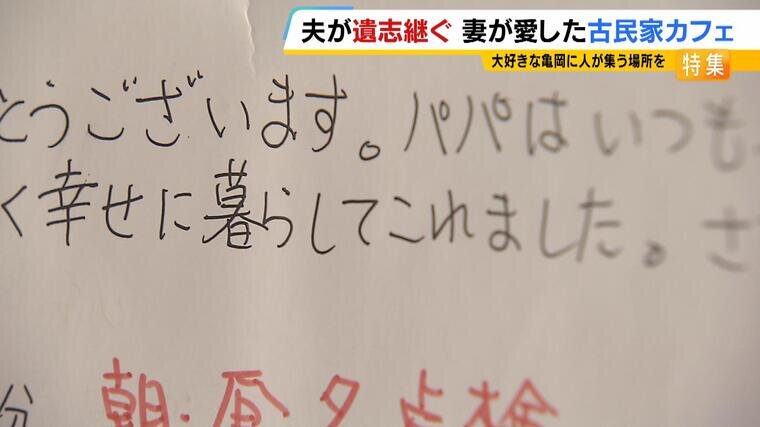 夫が遺志継ぐ 妻が愛した古民家カフェ
大好きな亀岡に人が集う場所を 特集
とうございます。パパはいつも
く幸せに暮らしてこれました。さ
分 朝・昼夕点検